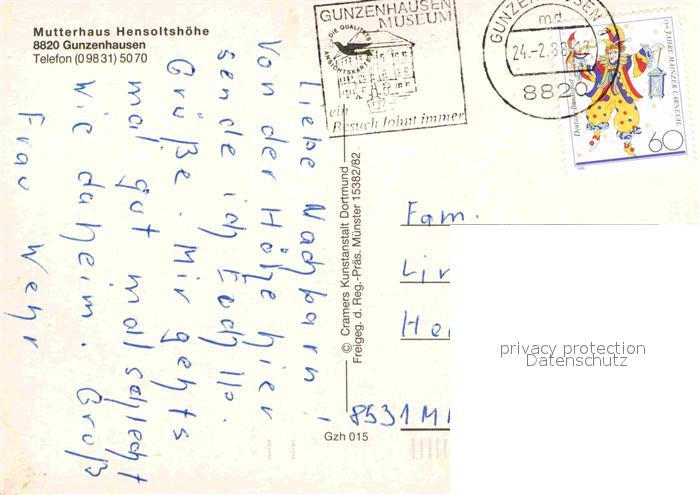 Mutterhaus Hensoltshöhe
8820 Gunzenhausen
Telefon (09831) 5070
GUNZENHAUSEN
MUSEUM
DIE QUALITÄTS
ANSICHTSKARTE
ein
Besuch lohnt immer
GUNZENHAUSEN
md
24.-2.88
8820
Deutsche Bundespost
150 JAHRE MAINZER CARNEVAL
60
Liebe Nachbarn!
Von der Höhe hier
sende ich Euch
Grüße. Mir gehts
mal gut mal schlecht
wie daheim. Gruß
Frau Wehr
© Cramers Kunstanstalt Dortmund
Freigeg. d. Reg.-Präs. Münster 15382/82
Fam.
8531 M
Gzh 015
privacy protection
Datenschutz